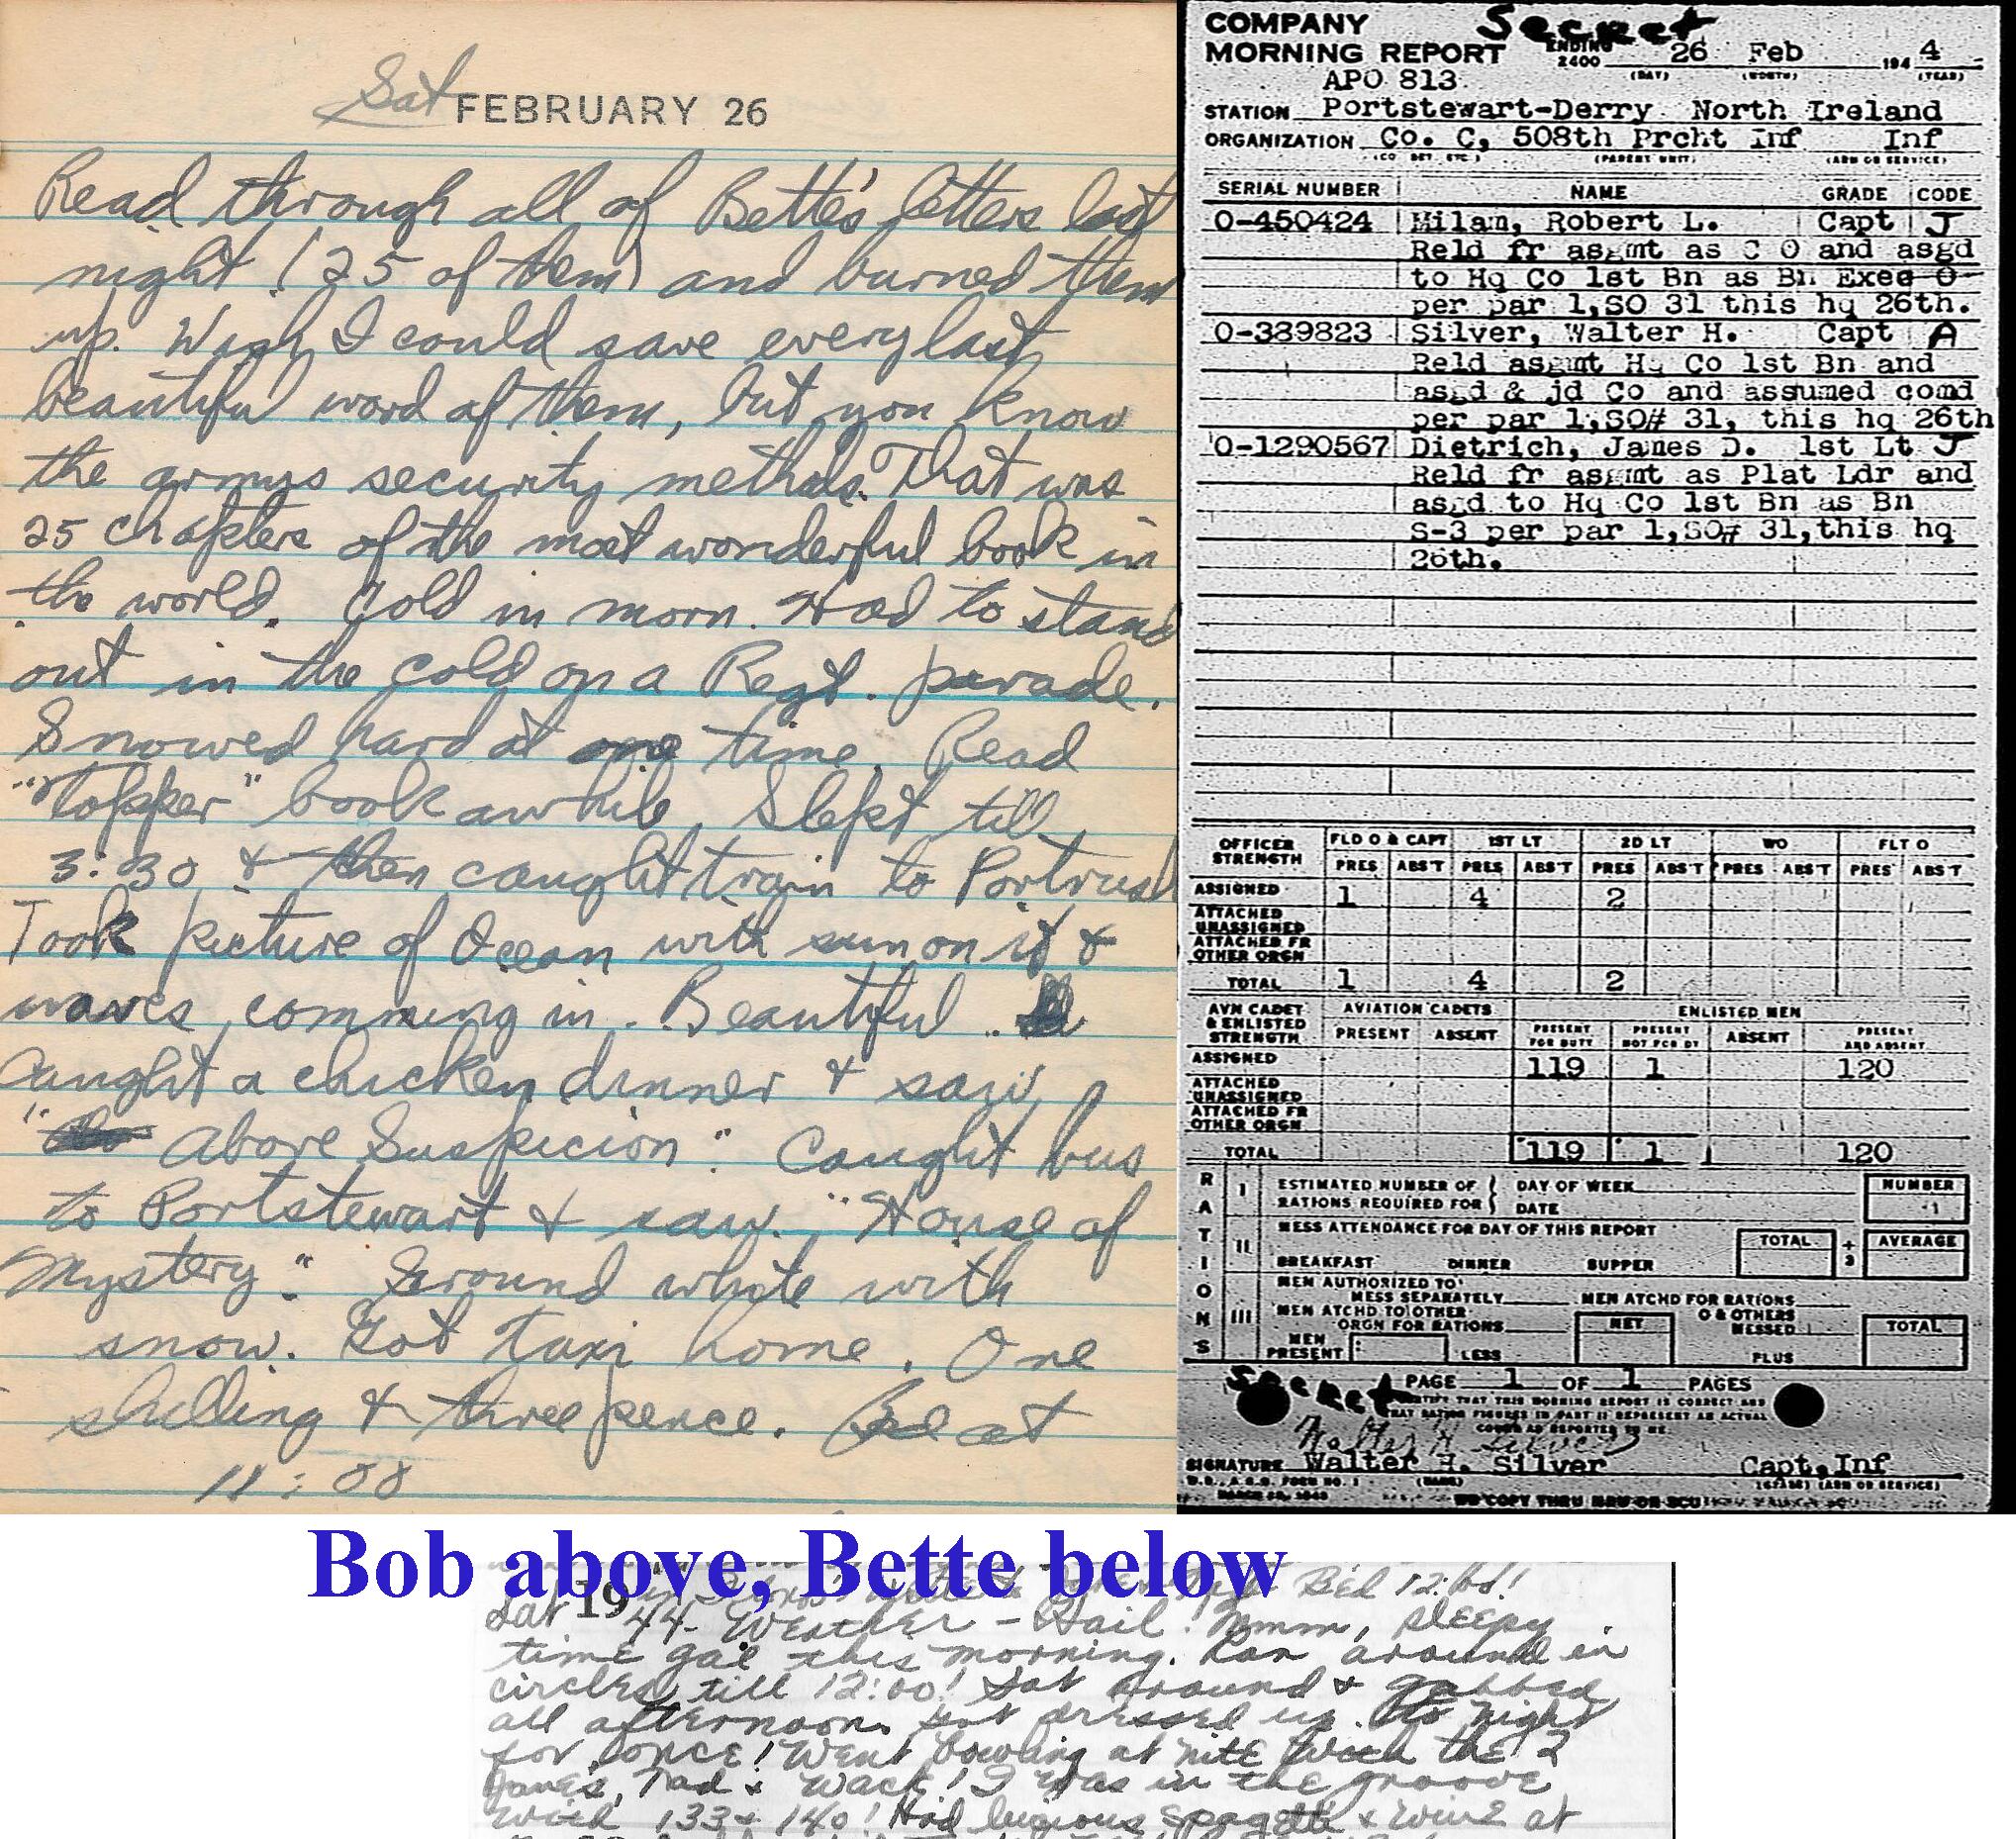 Sat FEBRUARY 26
Read through all of Bette's letters last
night (25 of them) and burned them
up. Wish I could save every last
beautiful word of them, but you know
the armys security methods. That was
25 chapters of the most wonderful book in
the world. Cold in morn. Had to stand
out in the cold on a Regt. parade.
Snowed hard at one time. Read
"Topper" book awhile. Slept till
3:30 & then caught train to Portrush
Took picture of Ocean with sun on it &
waves comming in. Beautiful.
Caught a chicken dinner & saw
"Above Suspicion". Caught bus
to Portstewart & saw. "House of
Mystery". Ground white with
snow. Got taxi home. One
shilling & three pence. Bed at
11:00
Secret
COMPANY
MORNING REPORT ENDING 2400 26 Feb 1944
(DAY) (MONTH) (YEAR)
APO 813
STATION Portstewart-Derry North Ireland
ORGANIZATION Co. C, 508th Prcht Inf Inf
(CO DET ETC) (PARENT UNIT) (ARM OR SERVICE)
SERIAL NUMBER NAME GRADE CODE
O-450424 Milam, Robert L. Capt J
Reld fr asgmt as C O and asgd
to Hq Co 1st Bn as Bn Exec O
per par 1,SO 31 this hq 26th.
O-389823 Silver, Walter H. Capt A
Reld asgmt Hq Co 1st Bn and
asgd & jd Co and assumed comd
per par 1,SO# 31, this hq 26th
O-1290567 Dietrich, James D. 1st Lt J
Reld fr asgmt as Plat Ldr and
asgd to Hq Co 1st Bn as Bn
S-3 per par 1,SO# 31,this hq
26th.
OFFICER STRENGTH FLD O & CAPT 1ST LT 2D LT WO FLT O
PRES ABS'T PRES ABS'T PRES ABS'T PRES ABS'T PRES ABS'T
ASSIGNED 1 4 2
ATTACHED UNASSIGNED
ATTACHED FR OTHER ORGN
TOTAL 1 4 2
AVN CADET & ENLISTED STRENGTH AVIATION CADETS ENLISTED MEN
PRESENT ABSENT PRESENT FOR DUTY PRESENT NOT FOR DY ABSENT PRESENT AND ABSENT
ASSIGNED 119 1 120
ATTACHED UNASSIGNED
ATTACHED FR OTHER ORGN
TOTAL 119 1 120
RATIONS
I ESTIMATED NUMBER OF RATIONS REQUIRED FOR DAY OF WEEK DATE NUMBER
II MESS ATTENDANCE FOR DAY OF THIS REPORT TOTAL ÷ 3 AVERAGE
BREAKFAST DINNER SUPPER
III MEN AUTHORIZED TO MESS SEPARATELY MEN ATCHD FOR RATIONS
MEN ATCHD TO OTHER ORGN FOR RATIONS NET O & OTHERS MESSED TOTAL
MEN PRESENT LESS PLUS
Secret PAGE 1 OF 1 PAGES
CERTIFY THAT THIS MORNING REPORT IS CORRECT AND
THAT RATION FIGURES IN PART II REPRESENT AN ACTUAL
COUNT AS REPORTED TO ME
Walter H Silver
SIGNATURE Walter H. Silver Capt,Inf
W.D., A.G.O. FORM NO. 1 (NAME) (GRADE) (ARM OR SERVICE)
Bob above, Bette below
Bed 12:00!
Sat 1944 Weather - Hail! Mmmm, sleepy
time gal this morning. Ran around in
circles till 12:00! Sat around & gabbed
all afternoon. Got dressed up
for once! Went bowling at nite with the 2
Janes, Tad & Wack! I was in the groove
with 133 & 140! Had lucious spagetti & wine at